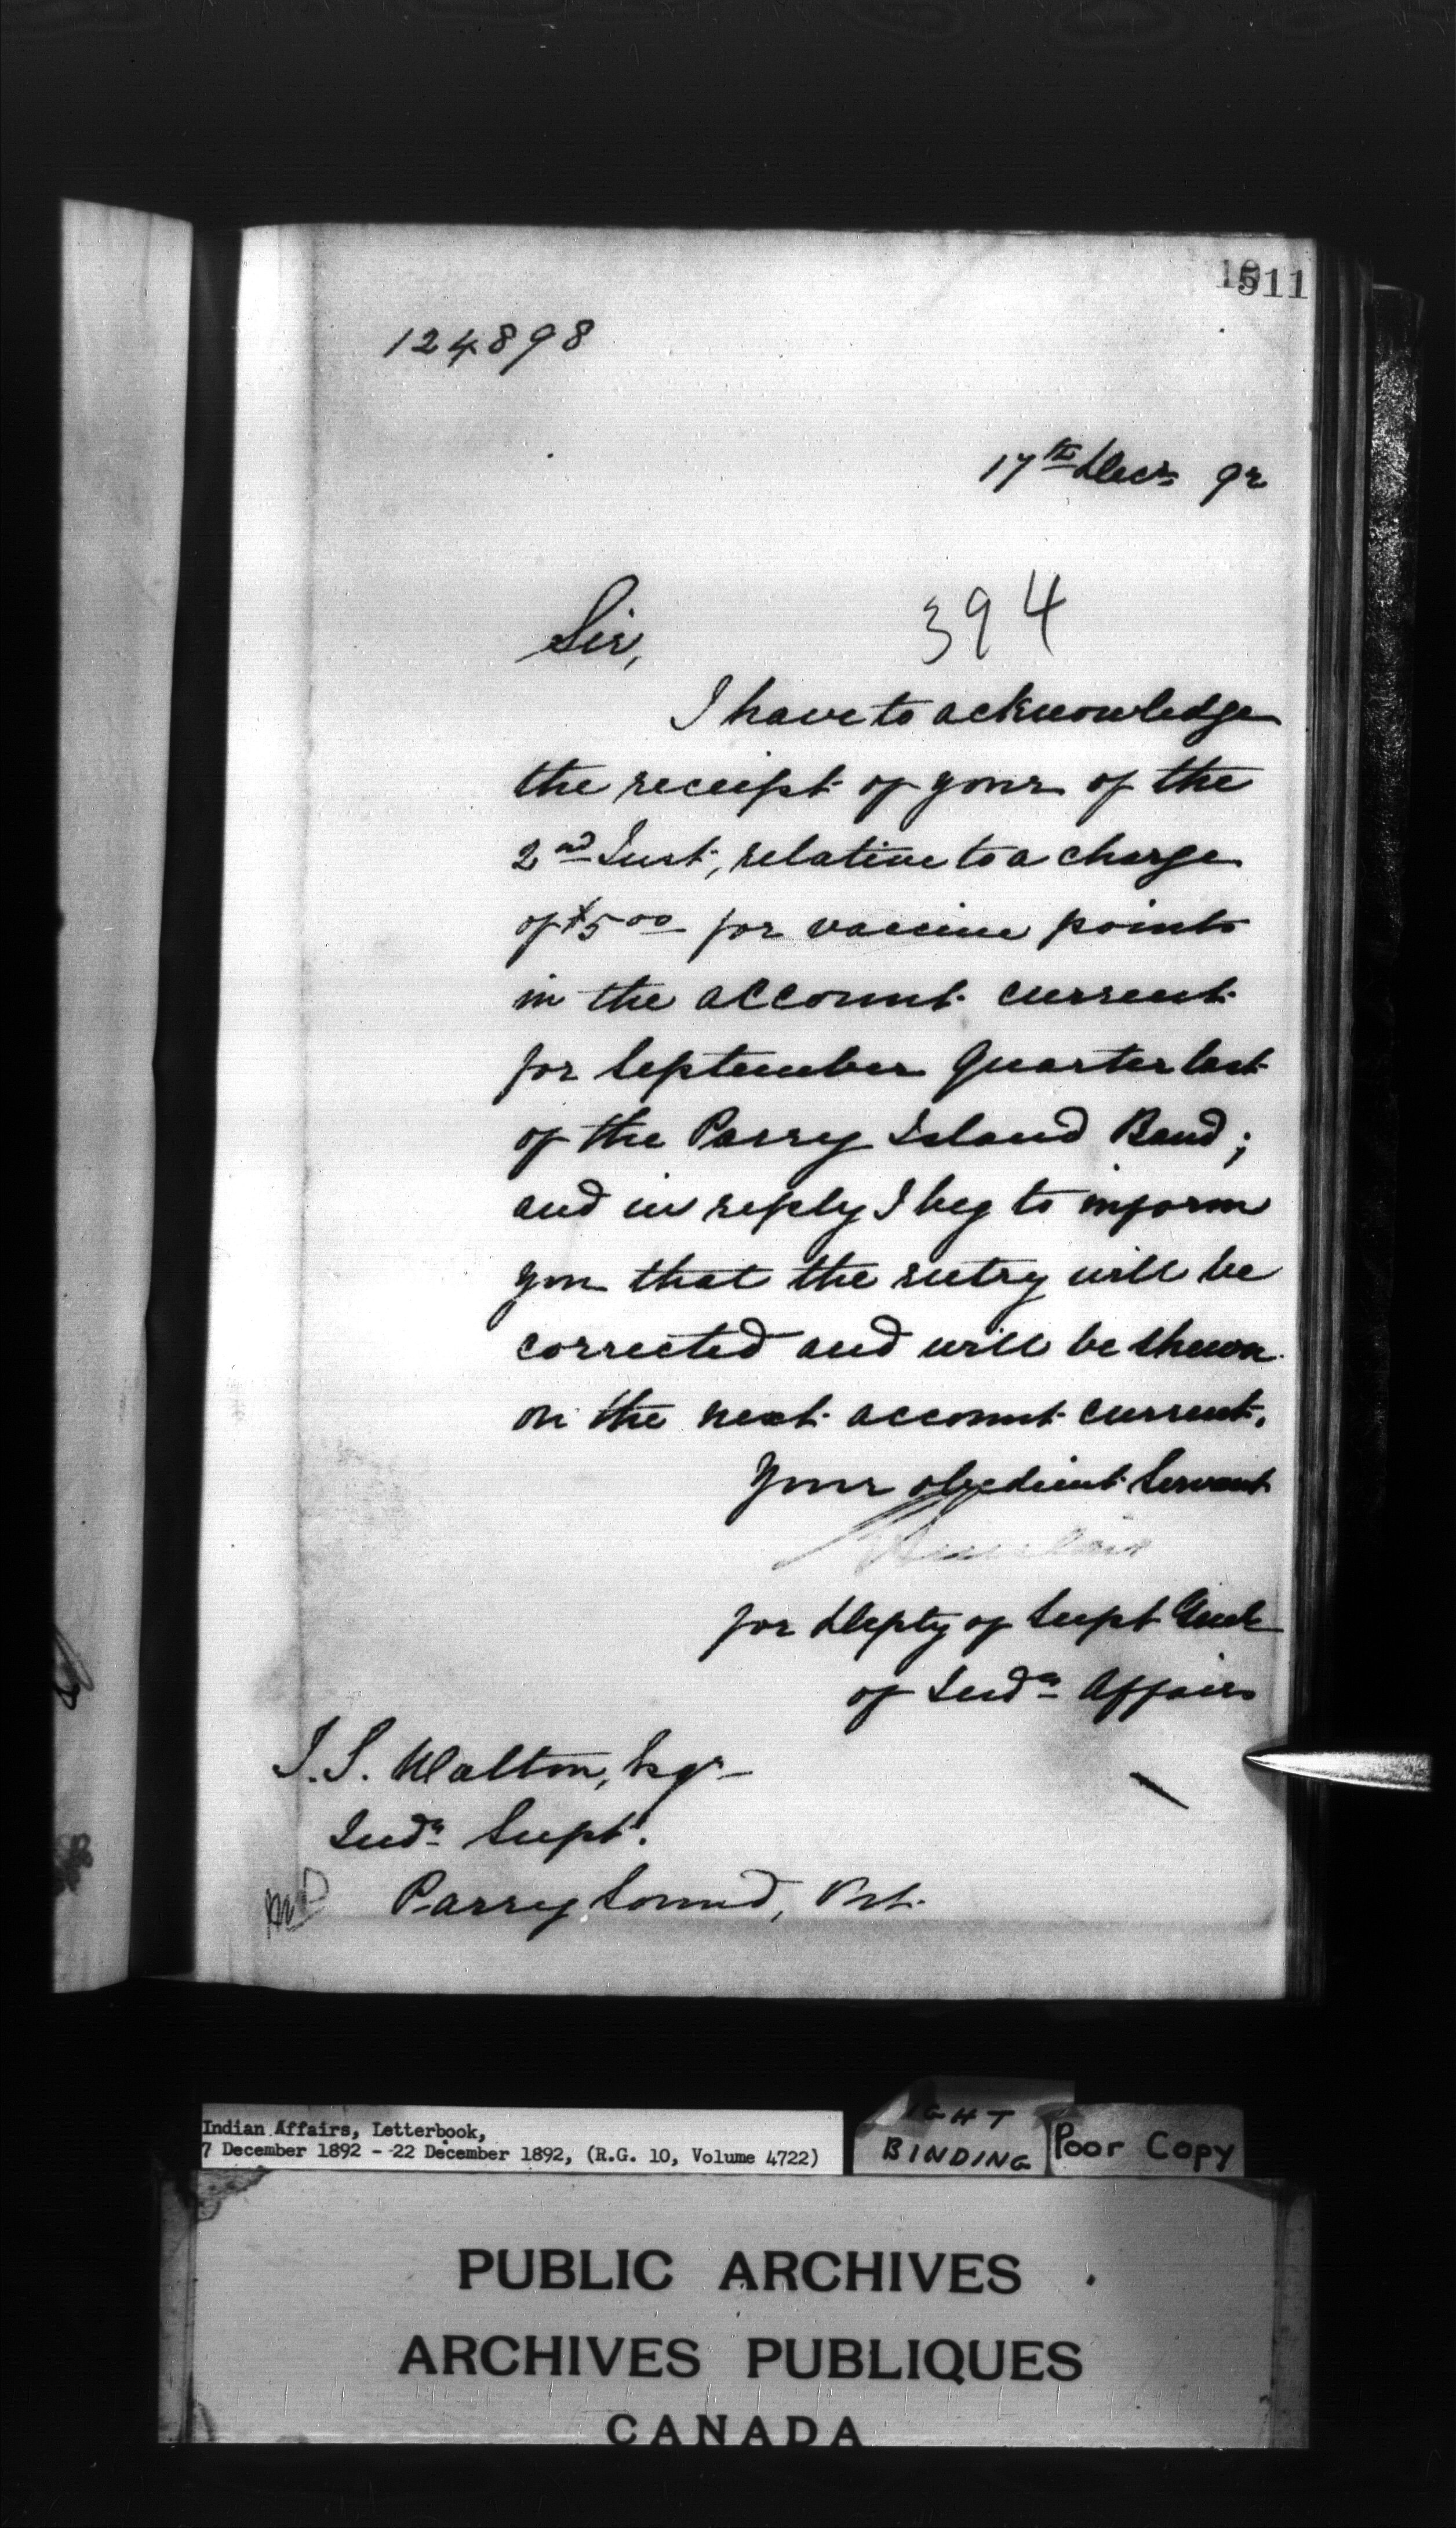 511
124898
17th Decr 92
Sir,
394
I have to acknowledge
the receipt of yours of the
2nd Inst, relative to a charge
of $5 00 for vaccine points
in the account current
for September Quarter last
of the Parry Island Band;
and in reply I beg to inform
you that the entry will be
corrected and will be shewn
on the next account current.
Your obedient Servant
for Depty of Supt Genl
of Indn Affairs
T. S. Walton, Esqr
Indn Supt.
Parry Sound, Ont.
Indian Affairs, Letterbook,
7 December 1892 - 22 December 1892, (R.G. 10, Volume 4722)
BINDING
Poor Copy
PUBLIC ARCHIVES
ARCHIVES PUBLIQUES
CANADA